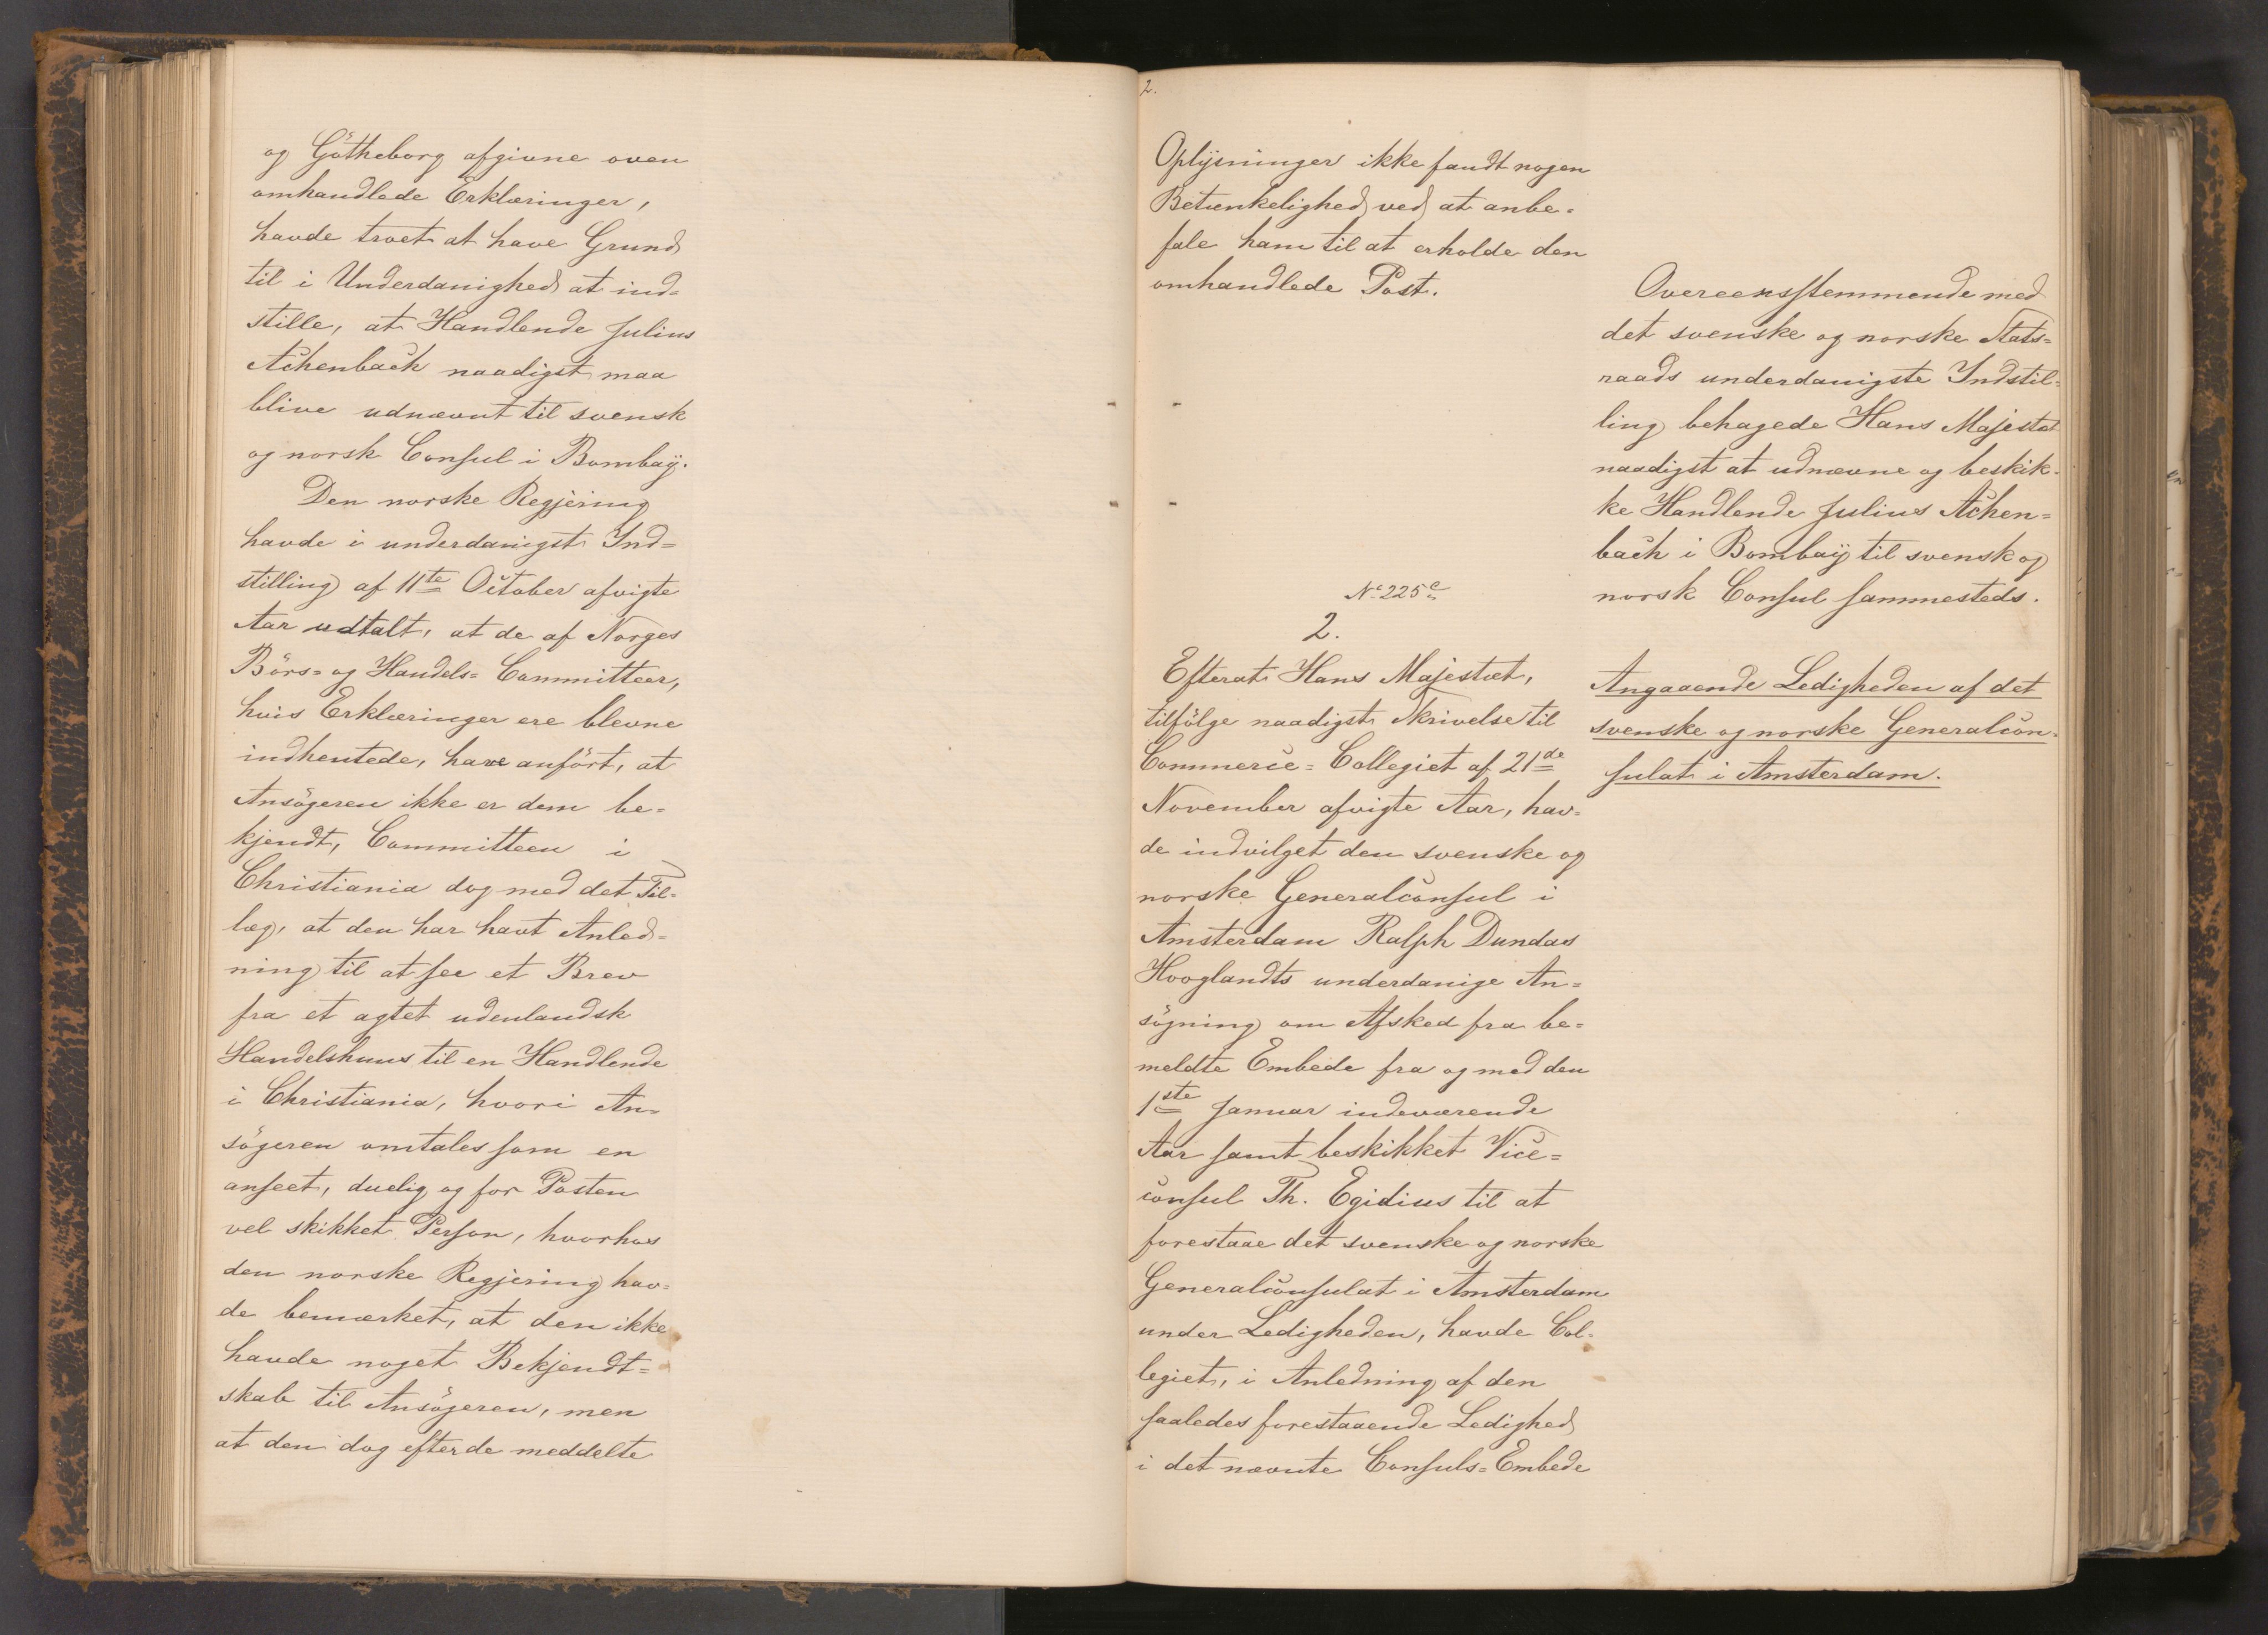 og Götheborg afgivne oven
omhandlede Erklæringer,
havde troet at have Grund
til i Underdanighed at ind-
stille, at Handlende Julius
Achenbach naadigst maa
blive udnævnt til svensk
og norsk Consul i Bombay.
Den norske Regjering
havde i underdanigst Ind-
stilling af 11te October afvigte
Aar udtalt, at de af Norges
Börs- og Handels- Committeer,
hvis Erklæringer ere blevne
indhentede, have anfört, at
Ansögeren ikke er dem be-
kjendt, Committeen i
Christiania dog med det Til-
læg, at den har havt Anled-
ning til at see et Brev
fra et agtet udenlandsk
Handelshuus til en Handlende
i Christiania, hvori An-
sögeren omtales som en
anseet, duelig og for Posten
vel skikket Person, hvorhos
den norske Regjering hav-
de bemærket, at den ikke
havde noget Bekjendt-
skab til Ansögeren, men
at den dog efter de meddelte
2.
Oplysninger ikke fandt nogen
Betænkelighed ved at anbe-
fale ham til at erholde den
omhandlede Post.
Overeensstemmende med
det svenske og norske Stats-
raads underdanigste Indstil-
ling behagede Hans Majestæt
naadigst at udnævne og beskik-
ke Handlende Julius Achen-
bach i Bombay til svensk og
norsk Consul sammesteds.
No 225c
2.
Efterat Hans Majestæt,
tilfölge naadigst Skrivelse til
Commerce- Collegiet af 21de
November afvigte Aar, hav-
de indvilget den svenske og
norske Generalconsul i
Amsterdam Ralph Dundas
Hooglandts underdanige An-
sögning om Afsked fra be-
meldte Embede fra og med den
1ste Januar indeværende
Aar samt beskikket Vice-
consul Th. Egidius til at
forestaae det svenske og norske
Generalconsulat i Amsterdam
under Ledigheden, havde Col-
legiet, i Anledning af den
saaledes forestaaende Ledighed
i det nævnte Consuls- Embede
Angaaende Ledigheden af det
svenske og norske Generalcon-
sulat i Amsterdam.